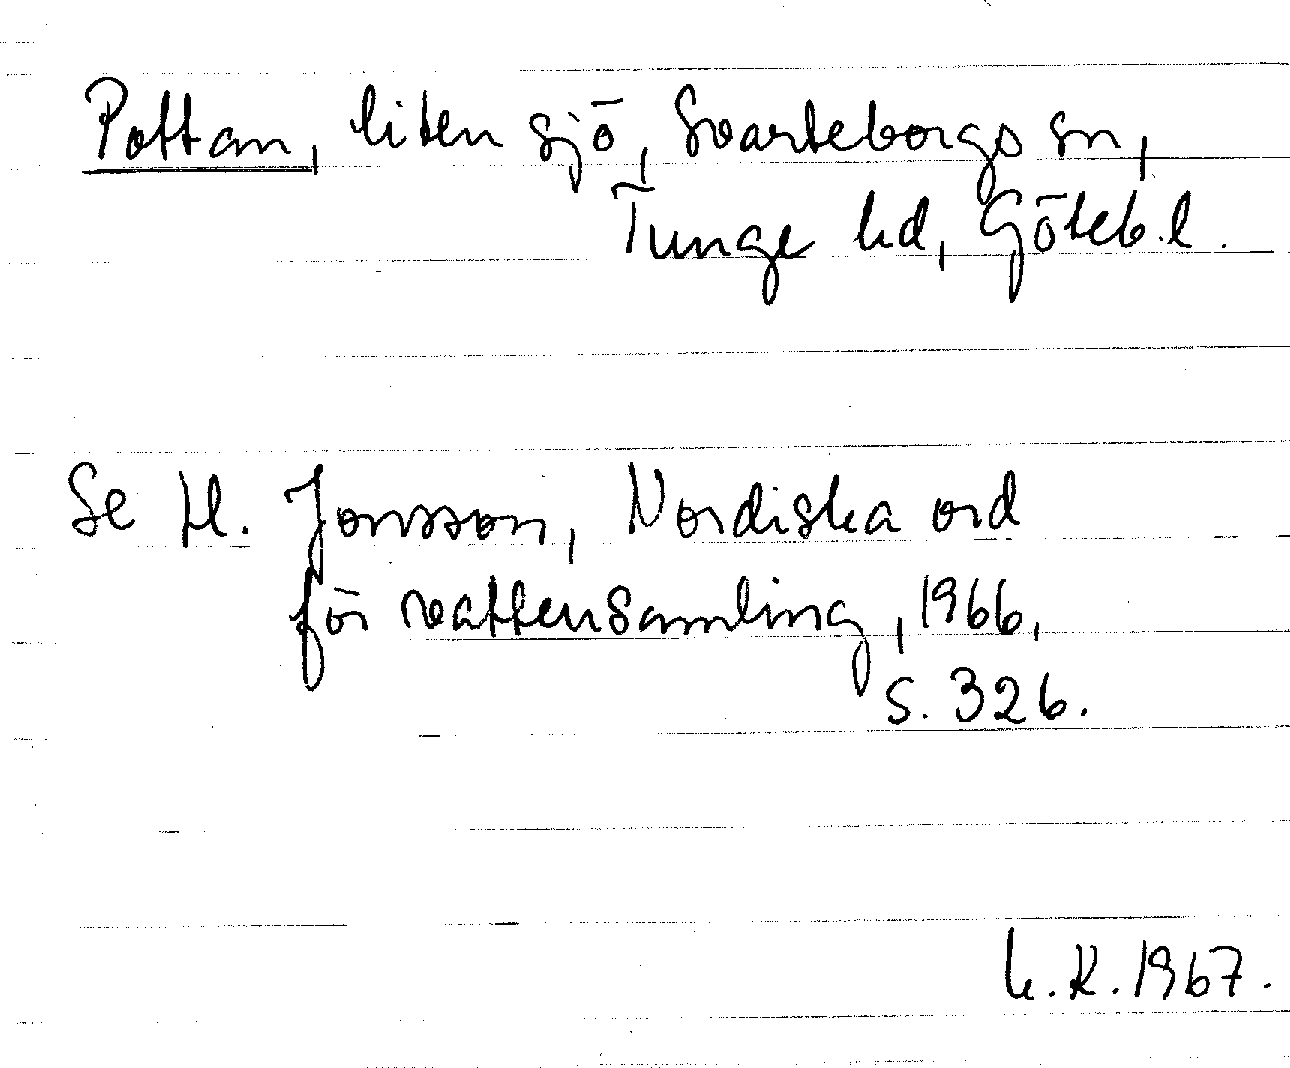 Pottan, liten sjö, Svarteborgs sn,
Tunge hd, Göteb.l.
Se H. Jonsson, Nordiska ord
för vattensamling, 1966,
s. 326.
K. 1967.